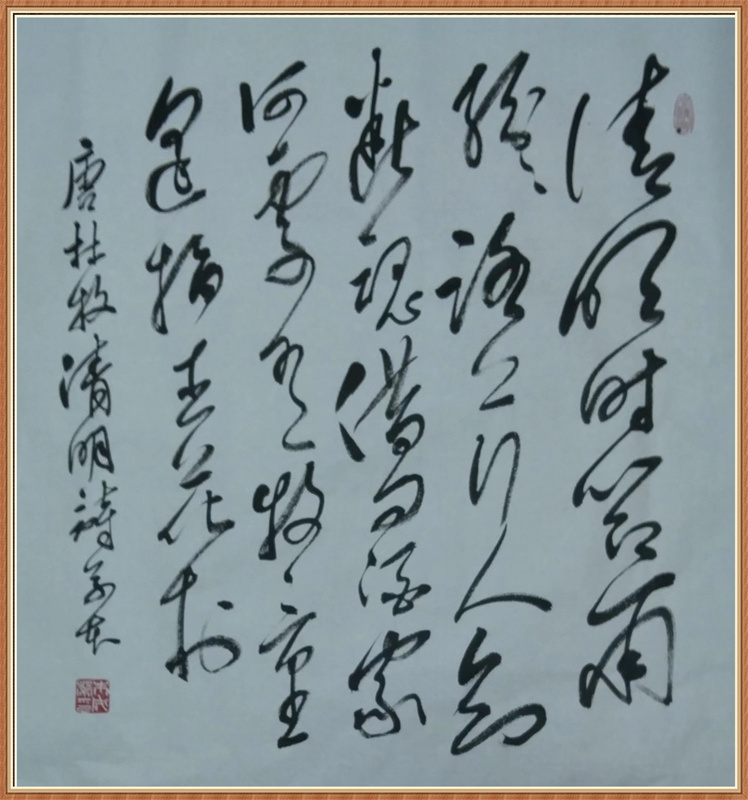 清明时節雨
紛々路上行人欲
断魂借問酒家
何處有牧童
遥指杏花村
唐杜牧清明詩